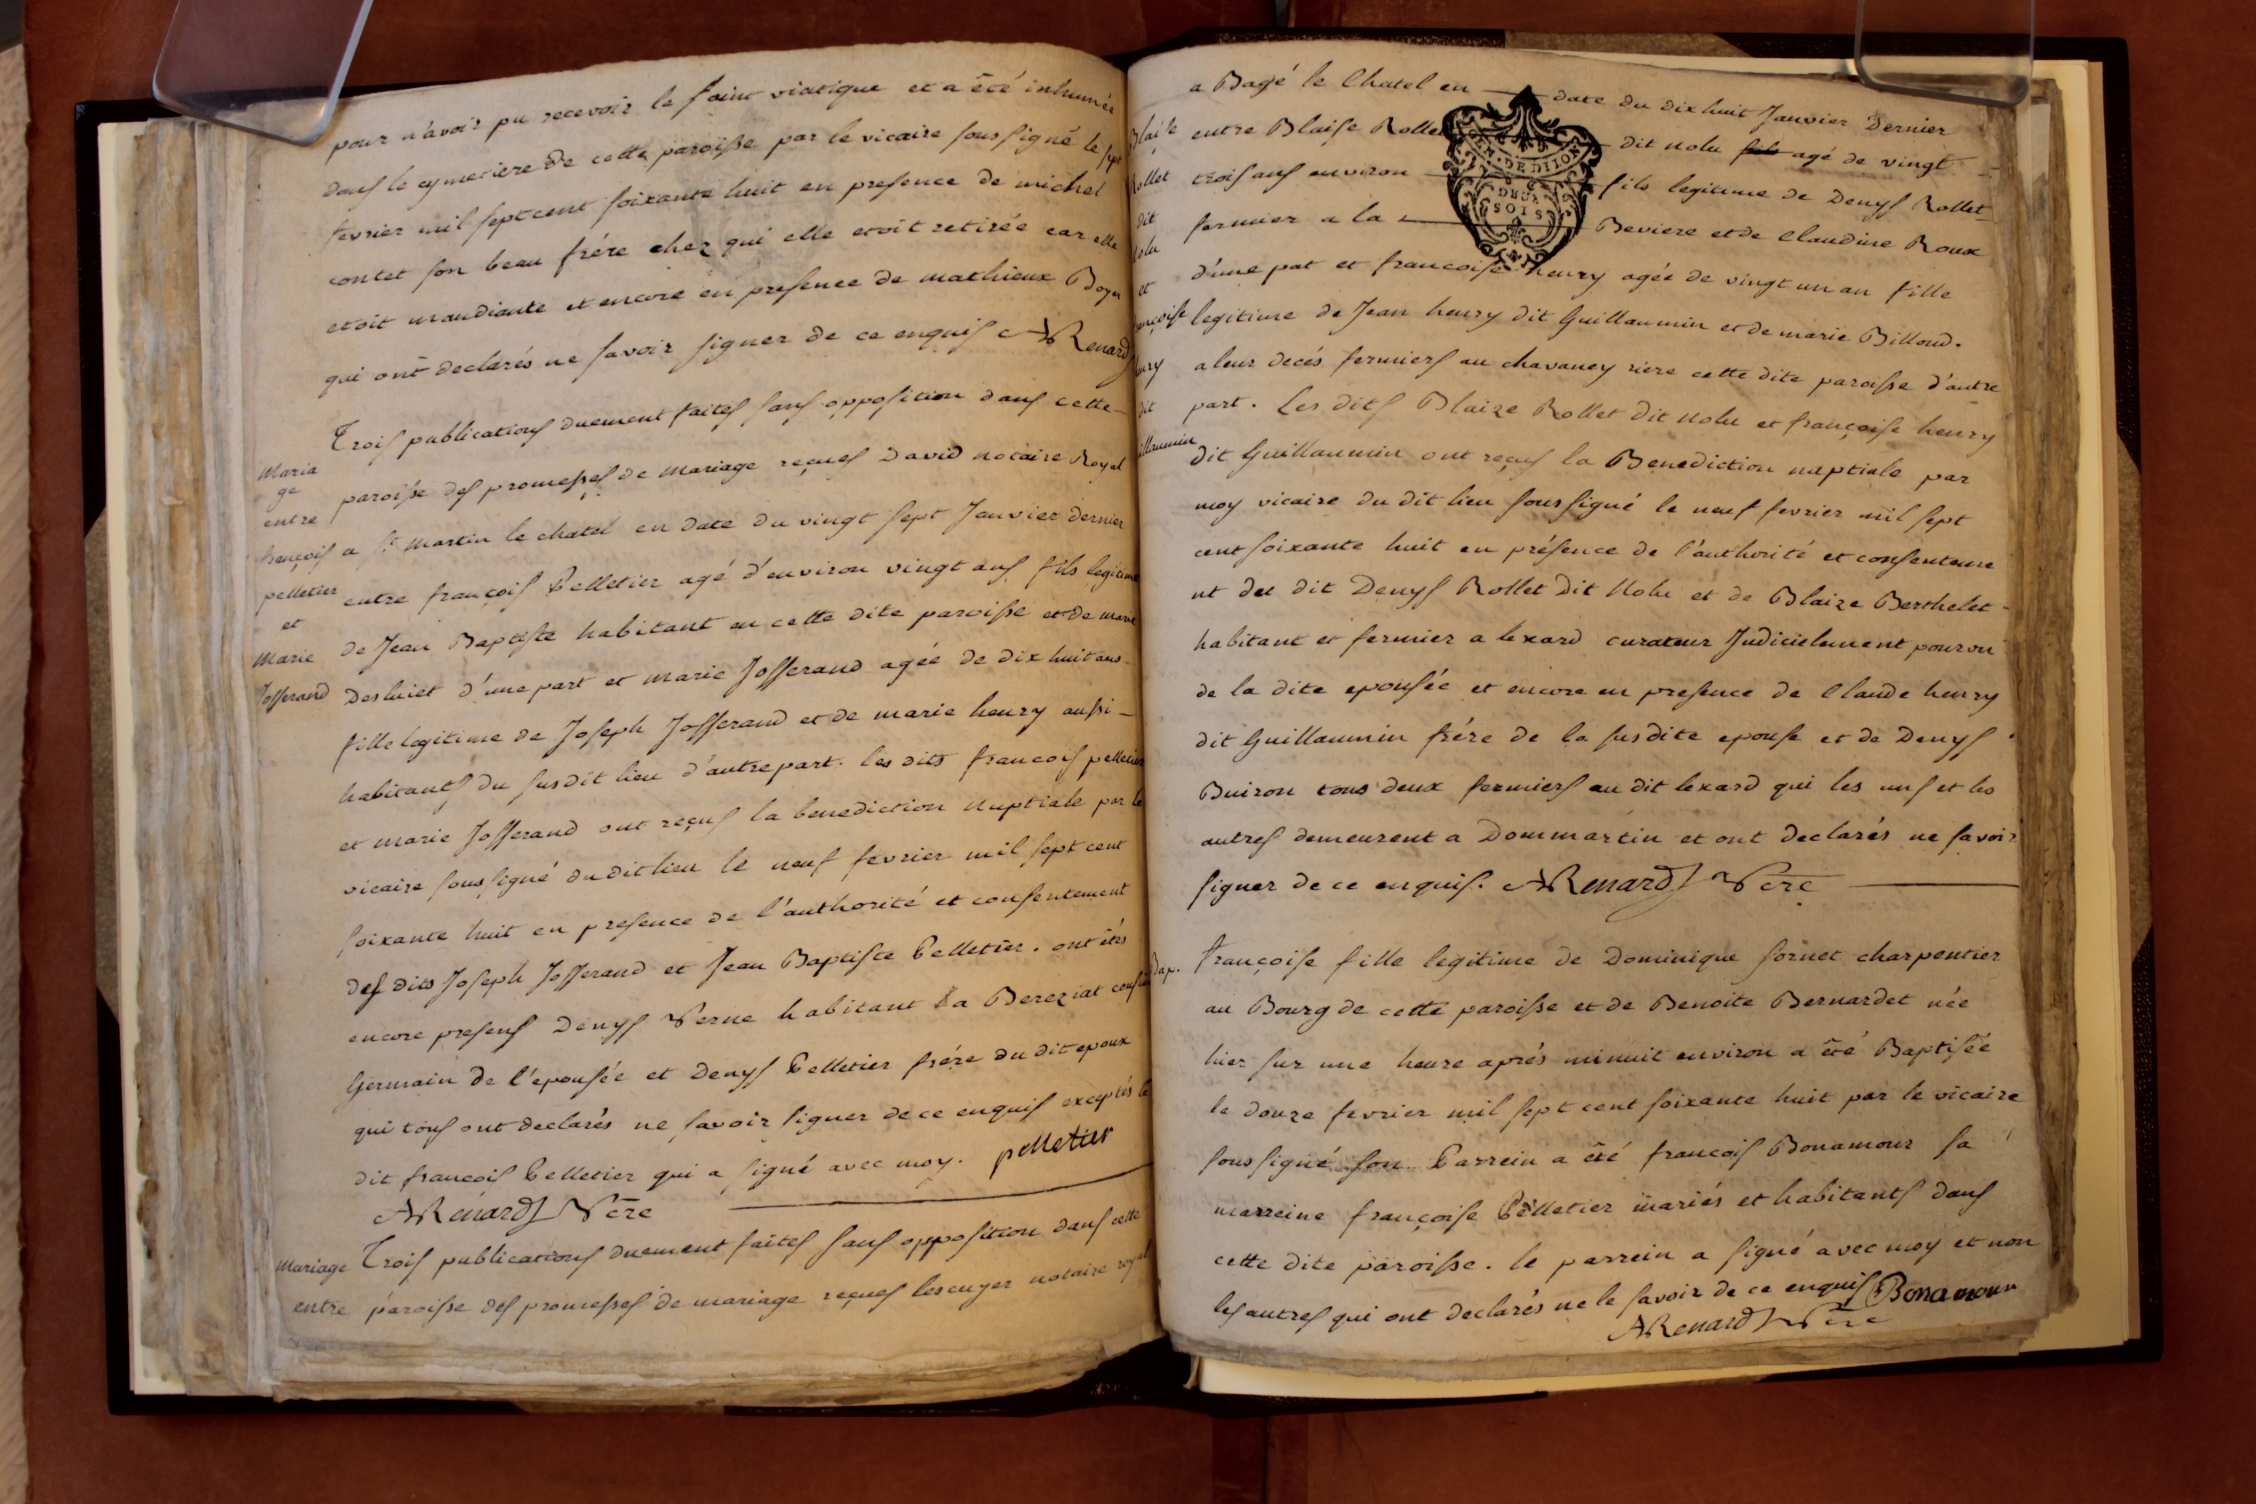 pour n'avoir pu recevoir le saint viatique et a été inhumée
dans le cymetiere de cette paroisse par le vicaire soussigné le sept
fevrier mil sept cent soixante huit en presence de michel
contet son beau frére chez qui elle etoit retirée car elle
etoit mandiante et encore en presence de mathieux Boyer
qui ont declarés ne savoir signer de ce enquis ARenard
Maria
ge
entre
françois
pelletier
et
Marie
Josserand
Trois publications duement faites sans opposition dans cette
paroisse des promesses de mariage reçues David notaire Royal
a st martin le chatel en date du vingt sept Janvier dernier
entre françois Pelletier agé d'environ vingt ans fils legitime
de Jean Baptiste habitant en cette dite paroisse et de marie
d'une part et marie Josserand agée de dix huit ans
fille legitime de Joseph Josserand et de marie henry aussi
habitants du susdit lieu d'autre part. les dits francois pelletier
et marie Josserand ont reçus la benediction nuptiale par le
vicaire soussigné du dit lieu le neuf fevrier mil sept cent
soixante huit en presence de l'authorité et consentement
des dits Joseph Josserand et Jean Baptiste Pelletier. ont étés
encore presens Denys Verne habitant a Bereziat
Germain de l'epousée et Denys Pelletier frére du dit epoux
qui tous ont declarés ne savoir signer de ce enquis exceptés le
dit francois Pelletier qui a signé avec moy. pelletier
ARenard Vcre
Mariage
entre
Trois publications duement faites sans opposition dans cette
paroisse des promesses de mariage reçues lescuyer notaire royal
Blaise
Rollet
dit
Nolu
et
françoise
henry
dit
Guillaumin
a Bagé le Chatel en date du dix huit Janvier Dernier
entre Blaise Rollet dit nolu fils agé de vingt
trois ans environ fils legitime de Denys Rollet
fermier a la Beviere et de Claudine Roux
GEN. DE DIJON
DEUX
SOLS
d'une pat et francoise henry agée de vingt un an fille
legitime de Jean henry dit Guillaumin et de marie Billoud.
a leur decés fermiers au chavaney riere cette dite paroisse d'autre
part. Les dits Blaize Rollet dit nolu et françoise henry
dit Guillaumin ont reçus la Benediction nuptiale par
moy vicaire du dit lieu soussigné le neuf fevrier mil sept
cent soixante huit en présence de l'authorité et consenteme
nt du dit Denys Rollet dit Nolu et de Blaize Berthelet
habitant et fermier a lexard curateur Judicielement pourvu
de la dite epousée et encore en presence de Claude henry
dit Guillaumin frére de la susdite epouse et de Denys
Buiron tous deux fermiers au dit lexard qui les uns et les
autres demeurent a Dommartin et ont declarés ne savoir
signer de ce enquis. ARenard Vcre
Bap.
françoise fille legitime de Dominique fornet charpentier
au Bourg de cette paroisse et de Benoite Bernardet née
hier sur une heure aprés minuit environ a été Baptisée
le douze fevrier mil sept cent soixante huit par le vicaire
soussigné son Parrein a été francois Bonamour sa
marreine françoise Pelletier mariés et habitants dans
cette dite paroisse. le parrein a signé avec moy et non
les autres qui ont declarés ne le savoir de ce enquis Bonamour
ARenard Vcre